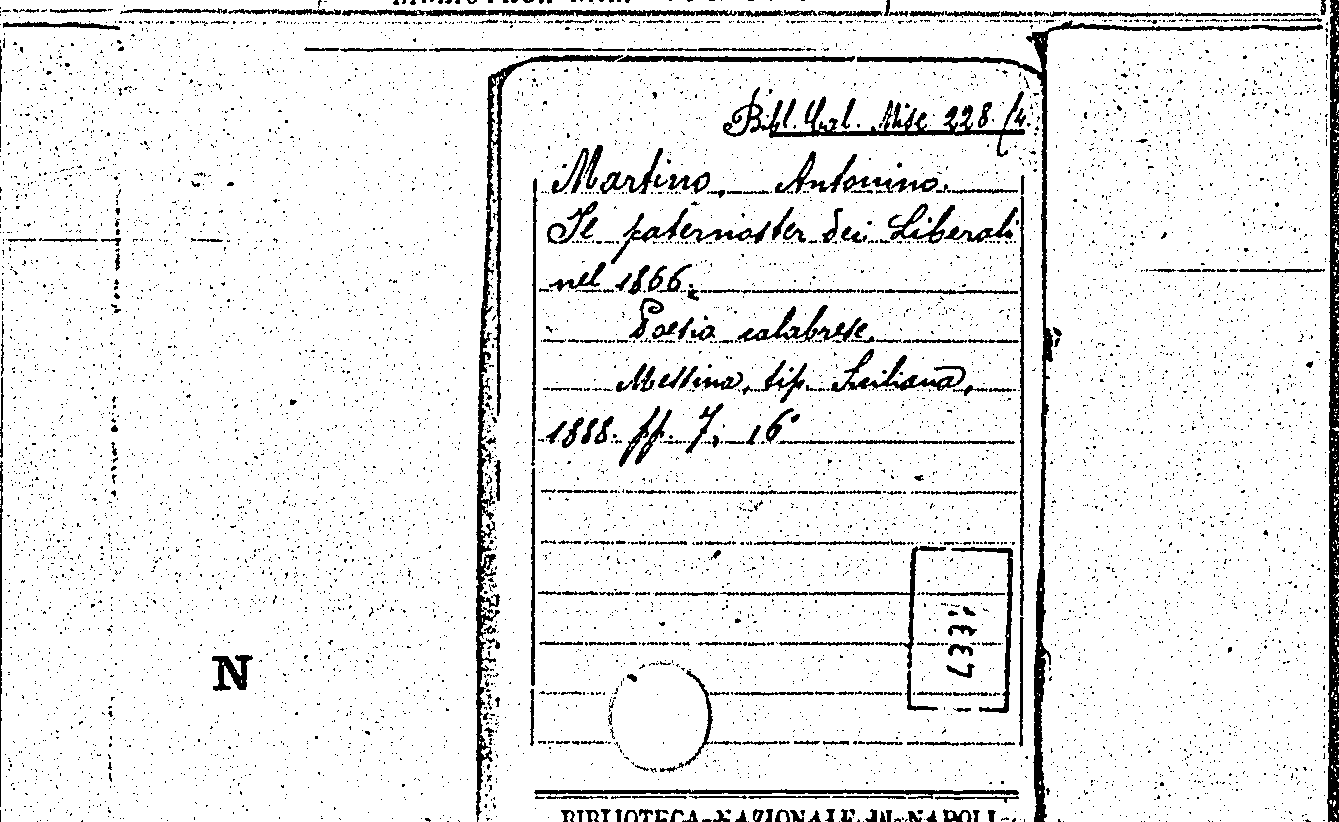 Bibl. Cal. Misc 228/4.
Martino, Antonino.
Il paternoster dei Liberali
nel 1866.
Poesia calabrese.
Messina, tip. Siciliana,
1888. pp. 7, 16°
N
BIBLIOTECA NAZIONALE IN NAPOLI